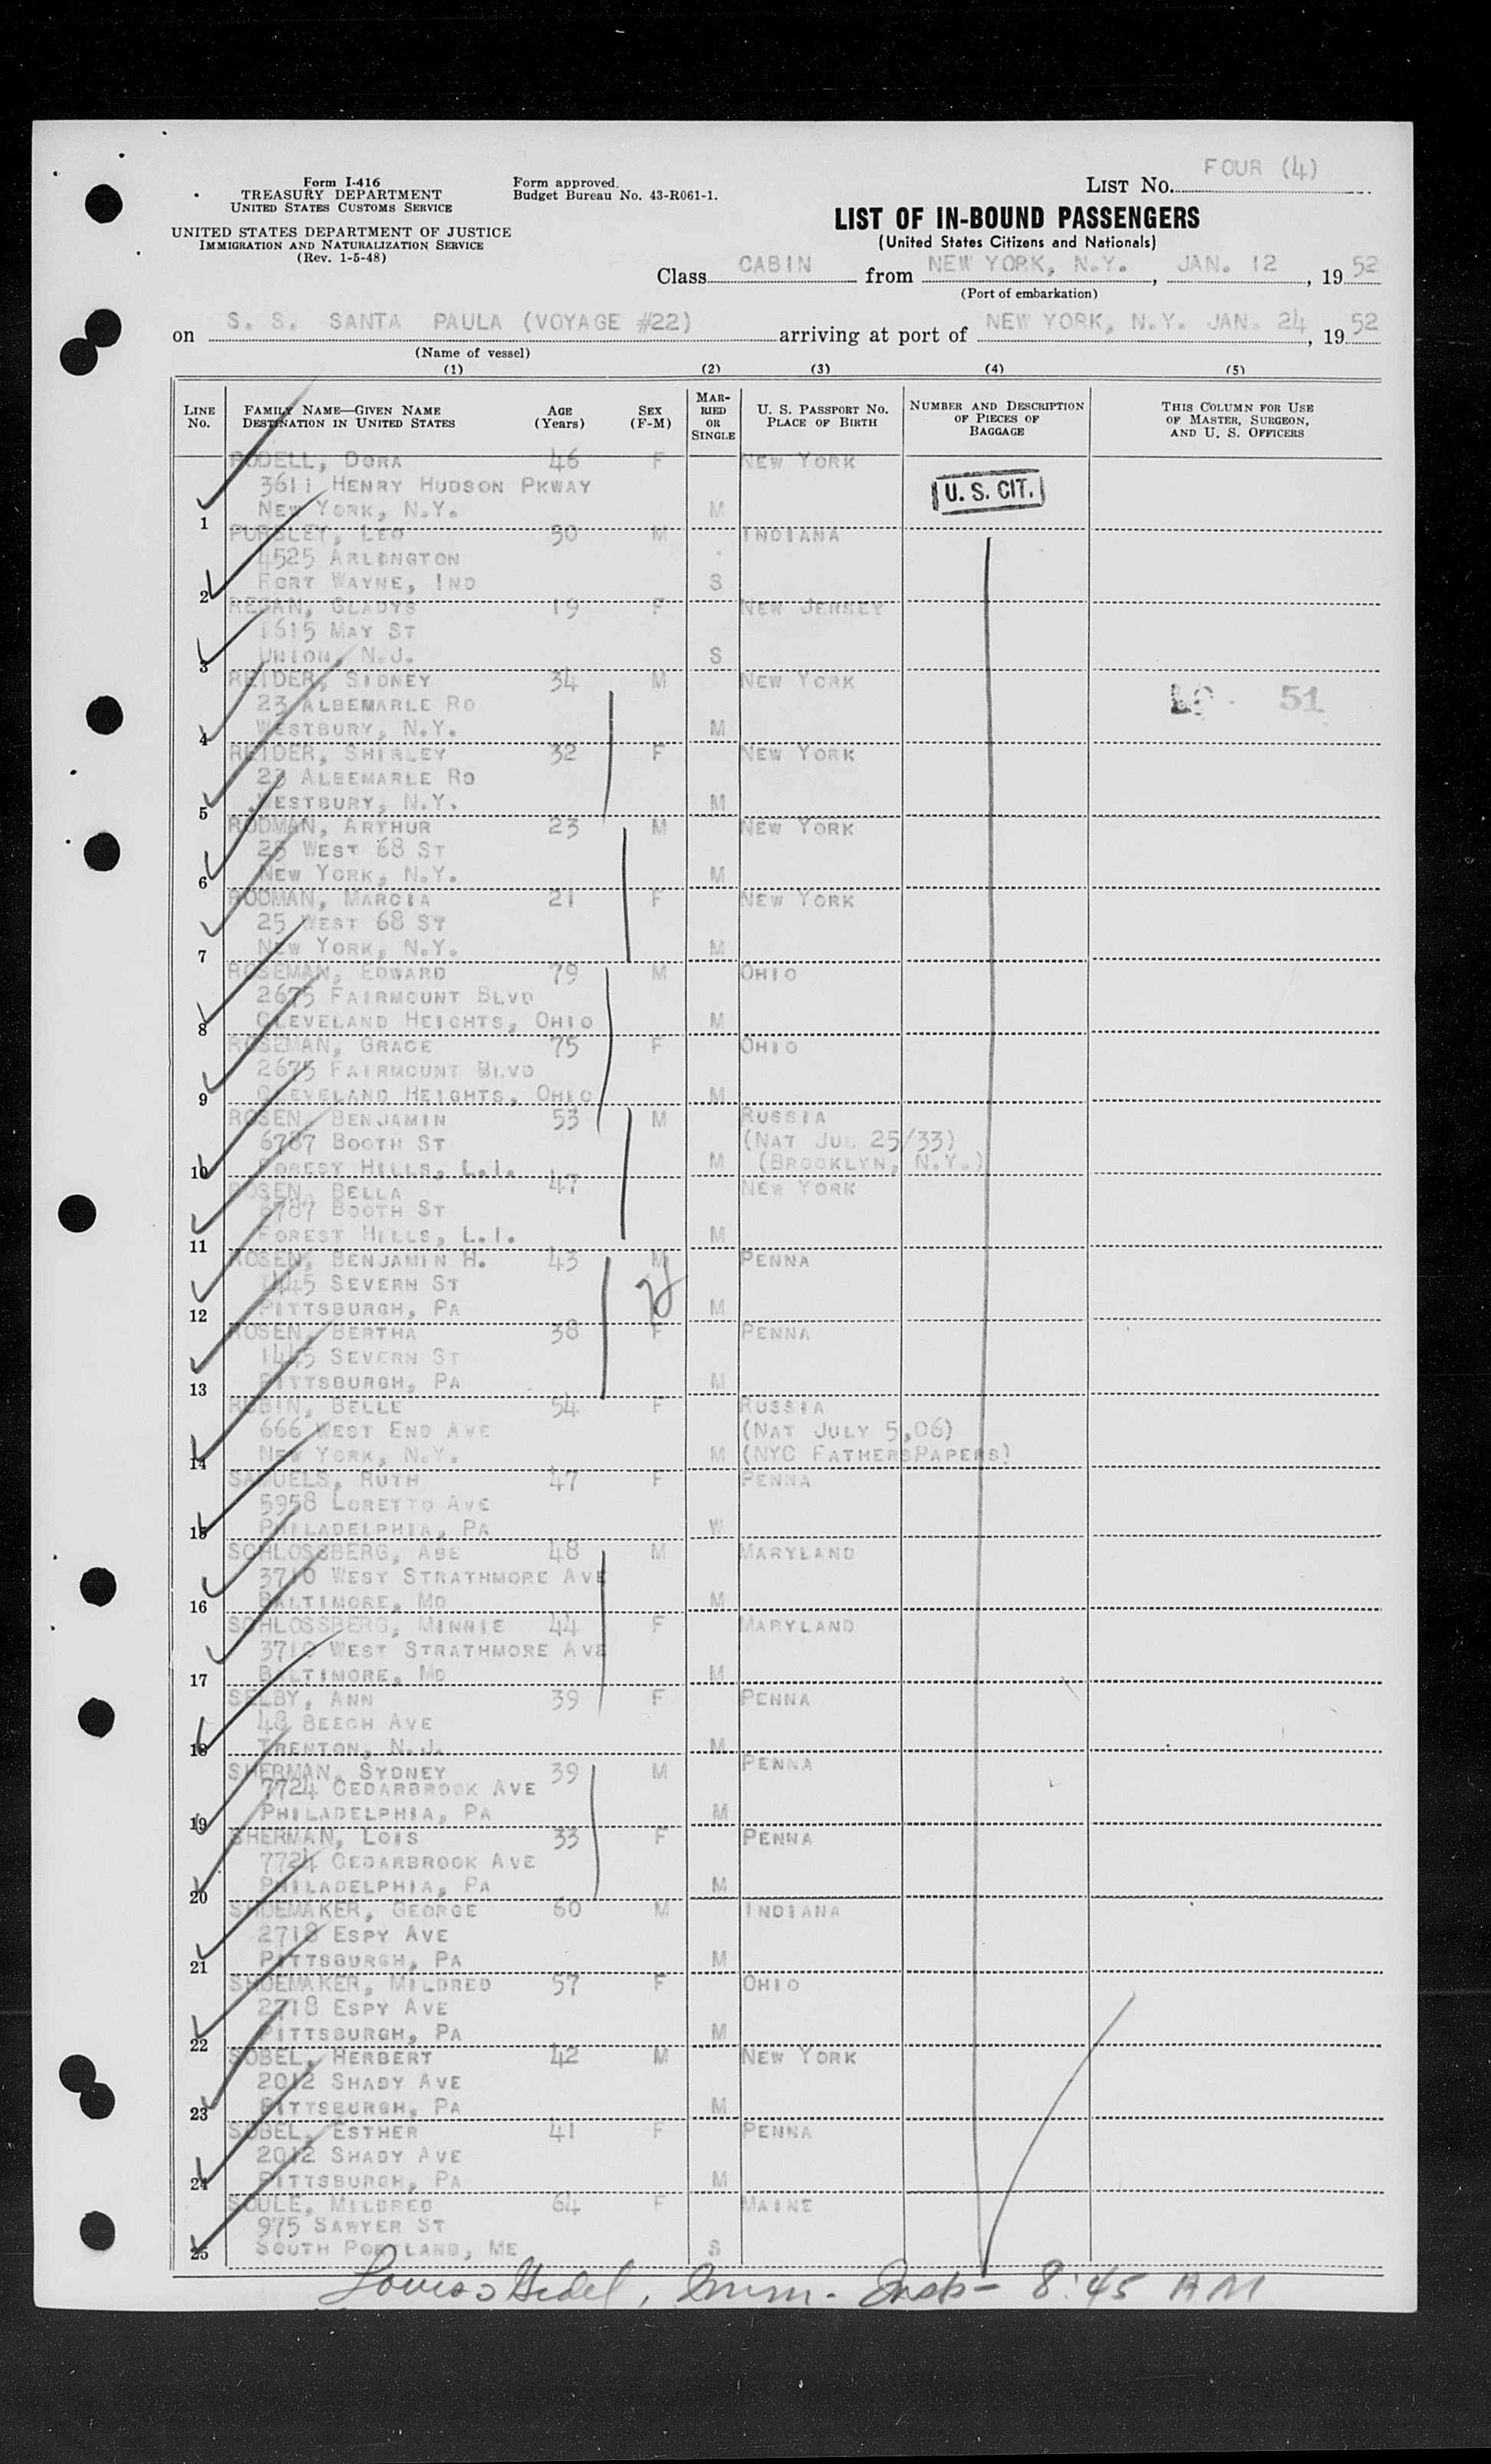 Form I-416
TREASURY DEPARTMENT
UNITED STATES CUSTOMS SERVICE
UNITED STATES DEPARTMENT OF JUSTICE
IMMIGRATION AND NATURALIZATION SERVICE
(Rev. 1-5-48)
Form approved.
Budget Bureau No. 43-R061-1.
LIST NO. FOUR (4)
LIST OF IN-BOUND PASSENGERS
(United States Citizens and Nationals)
Class CABIN from NEW YORK, N.Y., JAN. 12, 1952
(Port of embarkation)
on S. S. SANTA PAULA (VOYAGE #22) arriving at port of NEW YORK, N.Y. JAN. 24, 1952
(Name of vessel)
(1) (2) (3) (4) (5)
LINE NO.
FAMILY NAME—GIVEN NAME
DESTINATION IN UNITED STATES
AGE (Years)
SEX (F-M)
MARRIED OR SINGLE
U. S. PASSPORT NO.
PLACE OF BIRTH
NUMBER AND DESCRIPTION OF PIECES OF BAGGAGE
THIS COLUMN FOR USE OF MASTER, SURGEON, AND U. S. OFFICERS
RODELL, DORA 46 F NEW YORK
3611 HENRY HUDSON PKWAY U. S. CIT.
1 NEW YORK, N.Y. M
PURSLEY, LEO 50 M INDIANA
4525 ARLINGTON
2 FORT WAYNE, IND S
REGAN, GLADYS 19 F NEW JERSEY
1615 MAY ST
3 UNION, N.J. S
REIDER, SIDNEY 34 M NEW YORK
23 ALBEMARLE RD 51
4 WESTBURY, N.Y. M
REIDER, SHIRLEY 32 F NEW YORK
23 ALBEMARLE RD
5 WESTBURY, N.Y. M
RODMAN, ARTHUR 23 M NEW YORK
25 WEST 68 ST
6 NEW YORK, N.Y. M
RODMAN, MARCIA 21 F NEW YORK
25 WEST 68 ST
7 NEW YORK, N.Y. M
ROSEMAN, EDWARD 79 M OHIO
2675 FAIRMOUNT BLVD
8 CLEVELAND HEIGHTS, OHIO M
ROSEMAN, GRACE 75 F OHIO
2675 FAIRMOUNT BLVD
9 CLEVELAND HEIGHTS, OHIO M
ROSEN, BENJAMIN 53 M RUSSIA
6787 BOOTH ST (NAT JUL 25/33)
10 FOREST HILLS, L.I. M (BROOKLYN, N.Y.)
ROSEN, BELLA 47 NEW YORK
6787 BOOTH ST
11 FOREST HILLS, L.I. M
ROSEN, BENJAMIN H. 43 M PENNA
1445 SEVERN ST
12 PITTSBURGH, PA M
ROSEN, BERTHA 38 F PENNA
1445 SEVERN ST
13 PITTSBURGH, PA M
RUBIN, BELLE 54 F RUSSIA
666 WEST END AVE (NAT JULY 5,06)
14 NEW YORK, N.Y. M (NYC FATHERSPAPERS)
SAMUELS, RUTH 47 F PENNA
5958 LORETTO AVE
15 PHILADELPHIA, PA W
SCHLOSSBERG, ABE 48 M MARYLAND
3710 WEST STRATHMORE AVE
16 BALTIMORE, MD M
SCHLOSSBERG, MINNIE 44 F MARYLAND
3710 WEST STRATHMORE AVE
17 BALTIMORE, MD M
SELBY, ANN 39 F PENNA
48 BEECH AVE
18 TRENTON, N.J. M
SHERMAN, SYDNEY 39 M PENNA
7724 CEDARBROOK AVE
19 PHILADELPHIA, PA M
SHERMAN, LOIS 33 F PENNA
7724 CEDARBROOK AVE
20 PHILADELPHIA, PA M
SHOEMAKER, GEORGE 60 M INDIANA
2718 ESPY AVE
21 PITTSBURGH, PA M
SHOEMAKER, MILDRED 57 F OHIO
2718 ESPY AVE
22 PITTSBURGH, PA M
SOBEL, HERBERT 42 M NEW YORK
2012 SHADY AVE
23 PITTSBURGH, PA M
SOBEL, ESTHER 41 F PENNA
2012 SHADY AVE
24 PITTSBURGH, PA M
SOULE, MILDRED 64 F MAINE
975 SAWYER ST
25 SOUTH PORTLAND, ME S
Imm. Insp - 8:45 AM